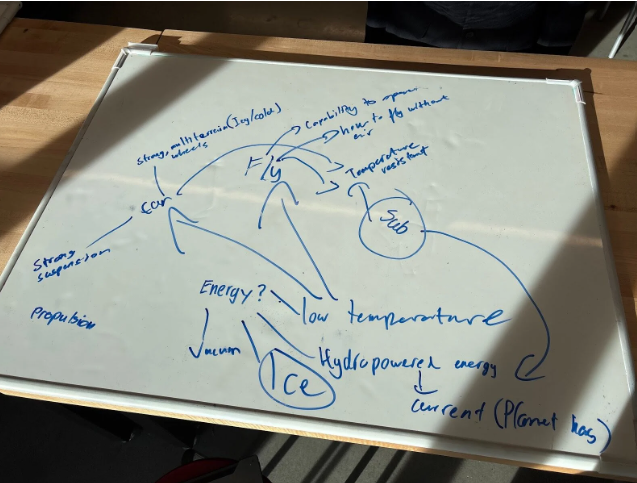 Strong, multiterrain (Icy/cold)
wheels
Fly
Capability to
how to fly without
air
Temperature
resistant
Car
Sub
Strong
suspension
Propulsion
Energy?
low temperature
Vacuum
Ice
Hydropowered energy
current (Planet has)